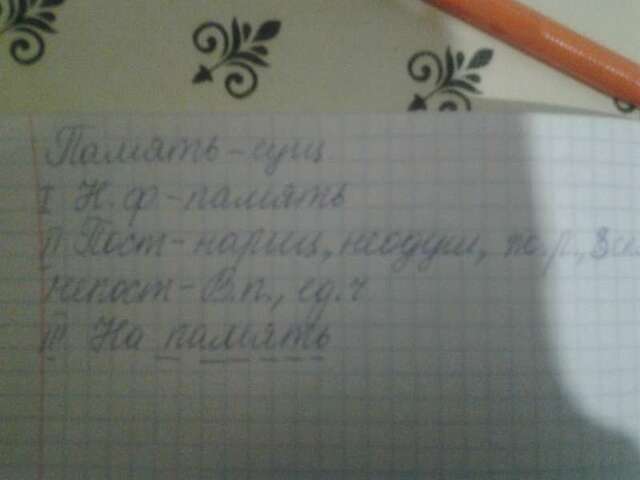 Память - сущ
I Н. ф - память
II Пост - нариц, неодуш, ж. р, 3 скл
Непост - В.п., ед.ч
III. На память